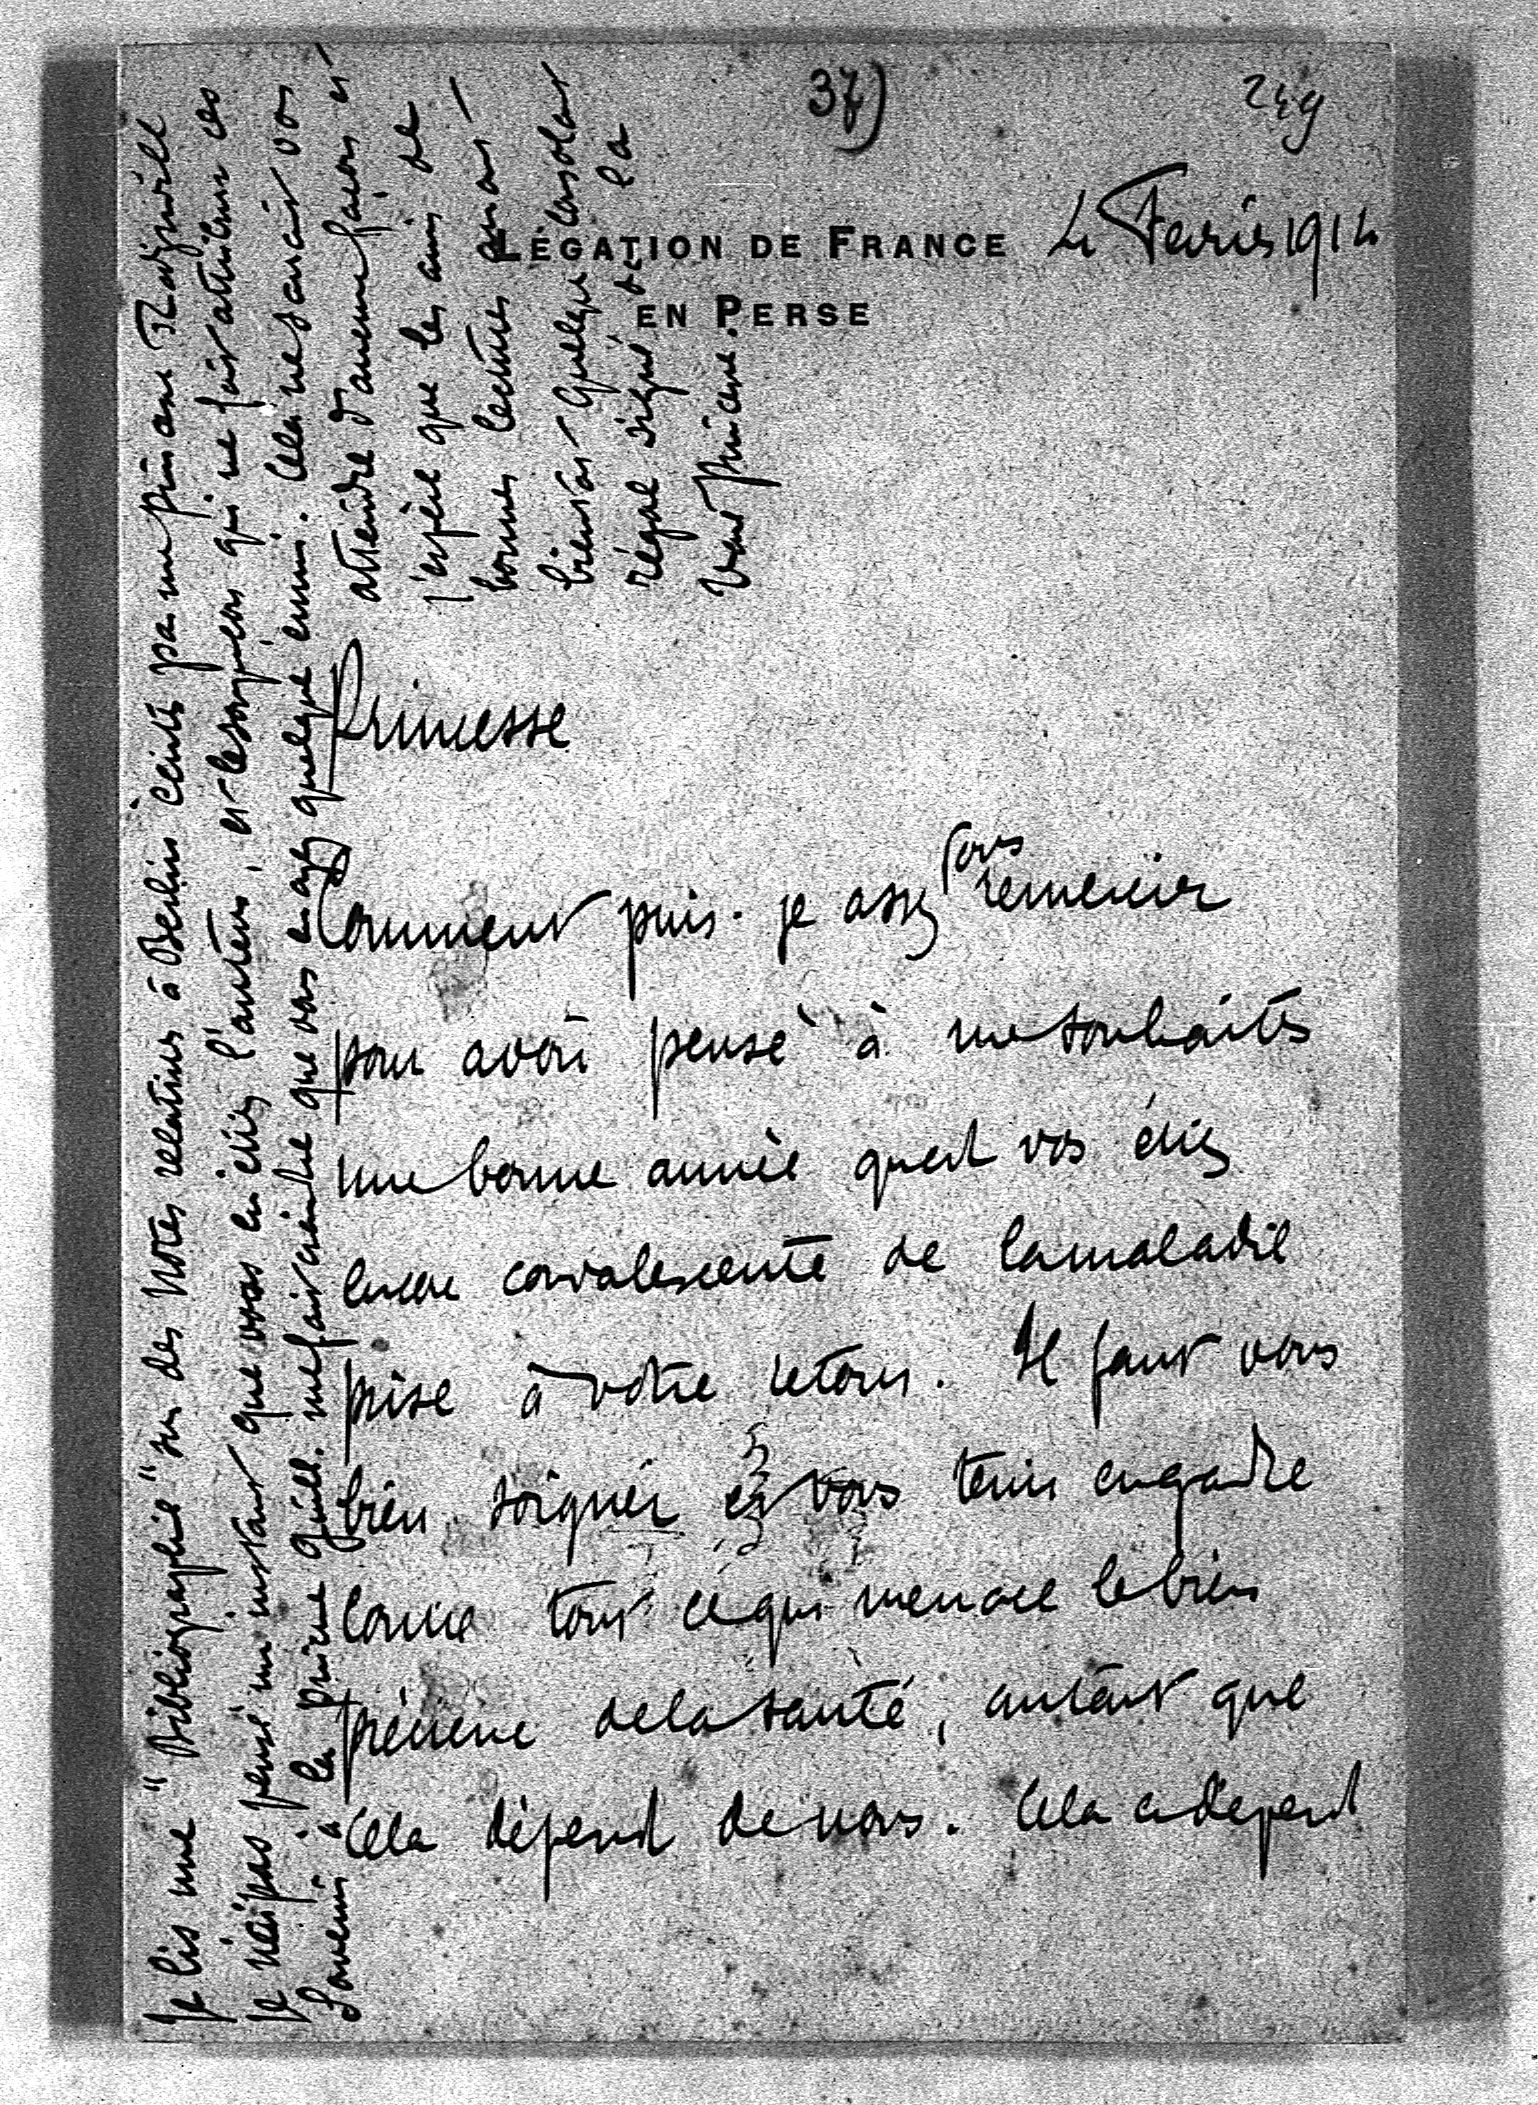 37)
249
LÉGATION DE FRANCE
EN PERSE
4 Fevrier 1914
Princesse
Comment puis-je assez vous remercier
pour avoir pensé à me souhaiter
une bonne année quand vous étiez
encore convalescente de la maladie
prise à votre retour. Il faut vous
bien soigner et vous tenir en garde
contre tout ce qui menace le bien
précieux de la santé, autant que
cela dépend de nous. Cela a dépend
Je lis une "Bibliographie" sur des Notes relatives à Berlin écrites par une princesse Radziwill
Je n'ai pas pensé un instant que vous en étiez l'auteur, et le soupçon qui me fait attribuer ces
souvenirs à la prince me fait craindre que vous en ayez quelque ennui. Cela ne saurait vous
atteindre d'aucune façon et
j'espère que les amis de
bonnes lectures auront
bientôt quelque
régal signé de la
vraie Princesse.